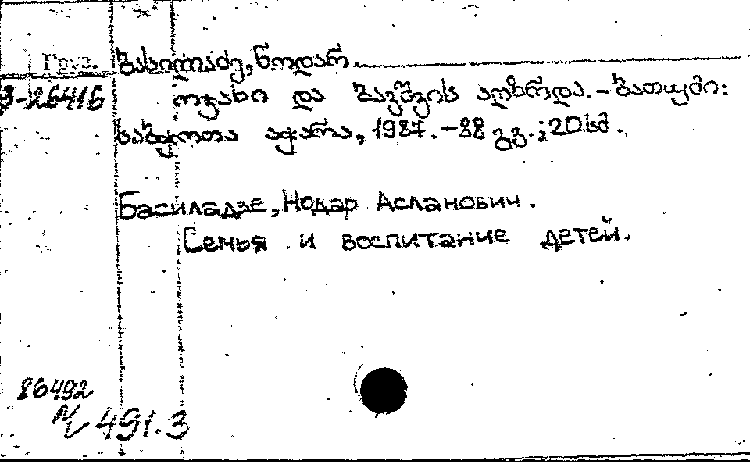 Груз. ბასილაძე, ნოდარ.
Э-26416 ოჯახი და ბავშვის აღზრდა. – ბათუმი:
საბჭოთა აჭარა, 1987. – 88 გვ.; 20 სმ.
Басиладзе, Нодар Асланович.
Семья и воспитание детей.
86492
491.3